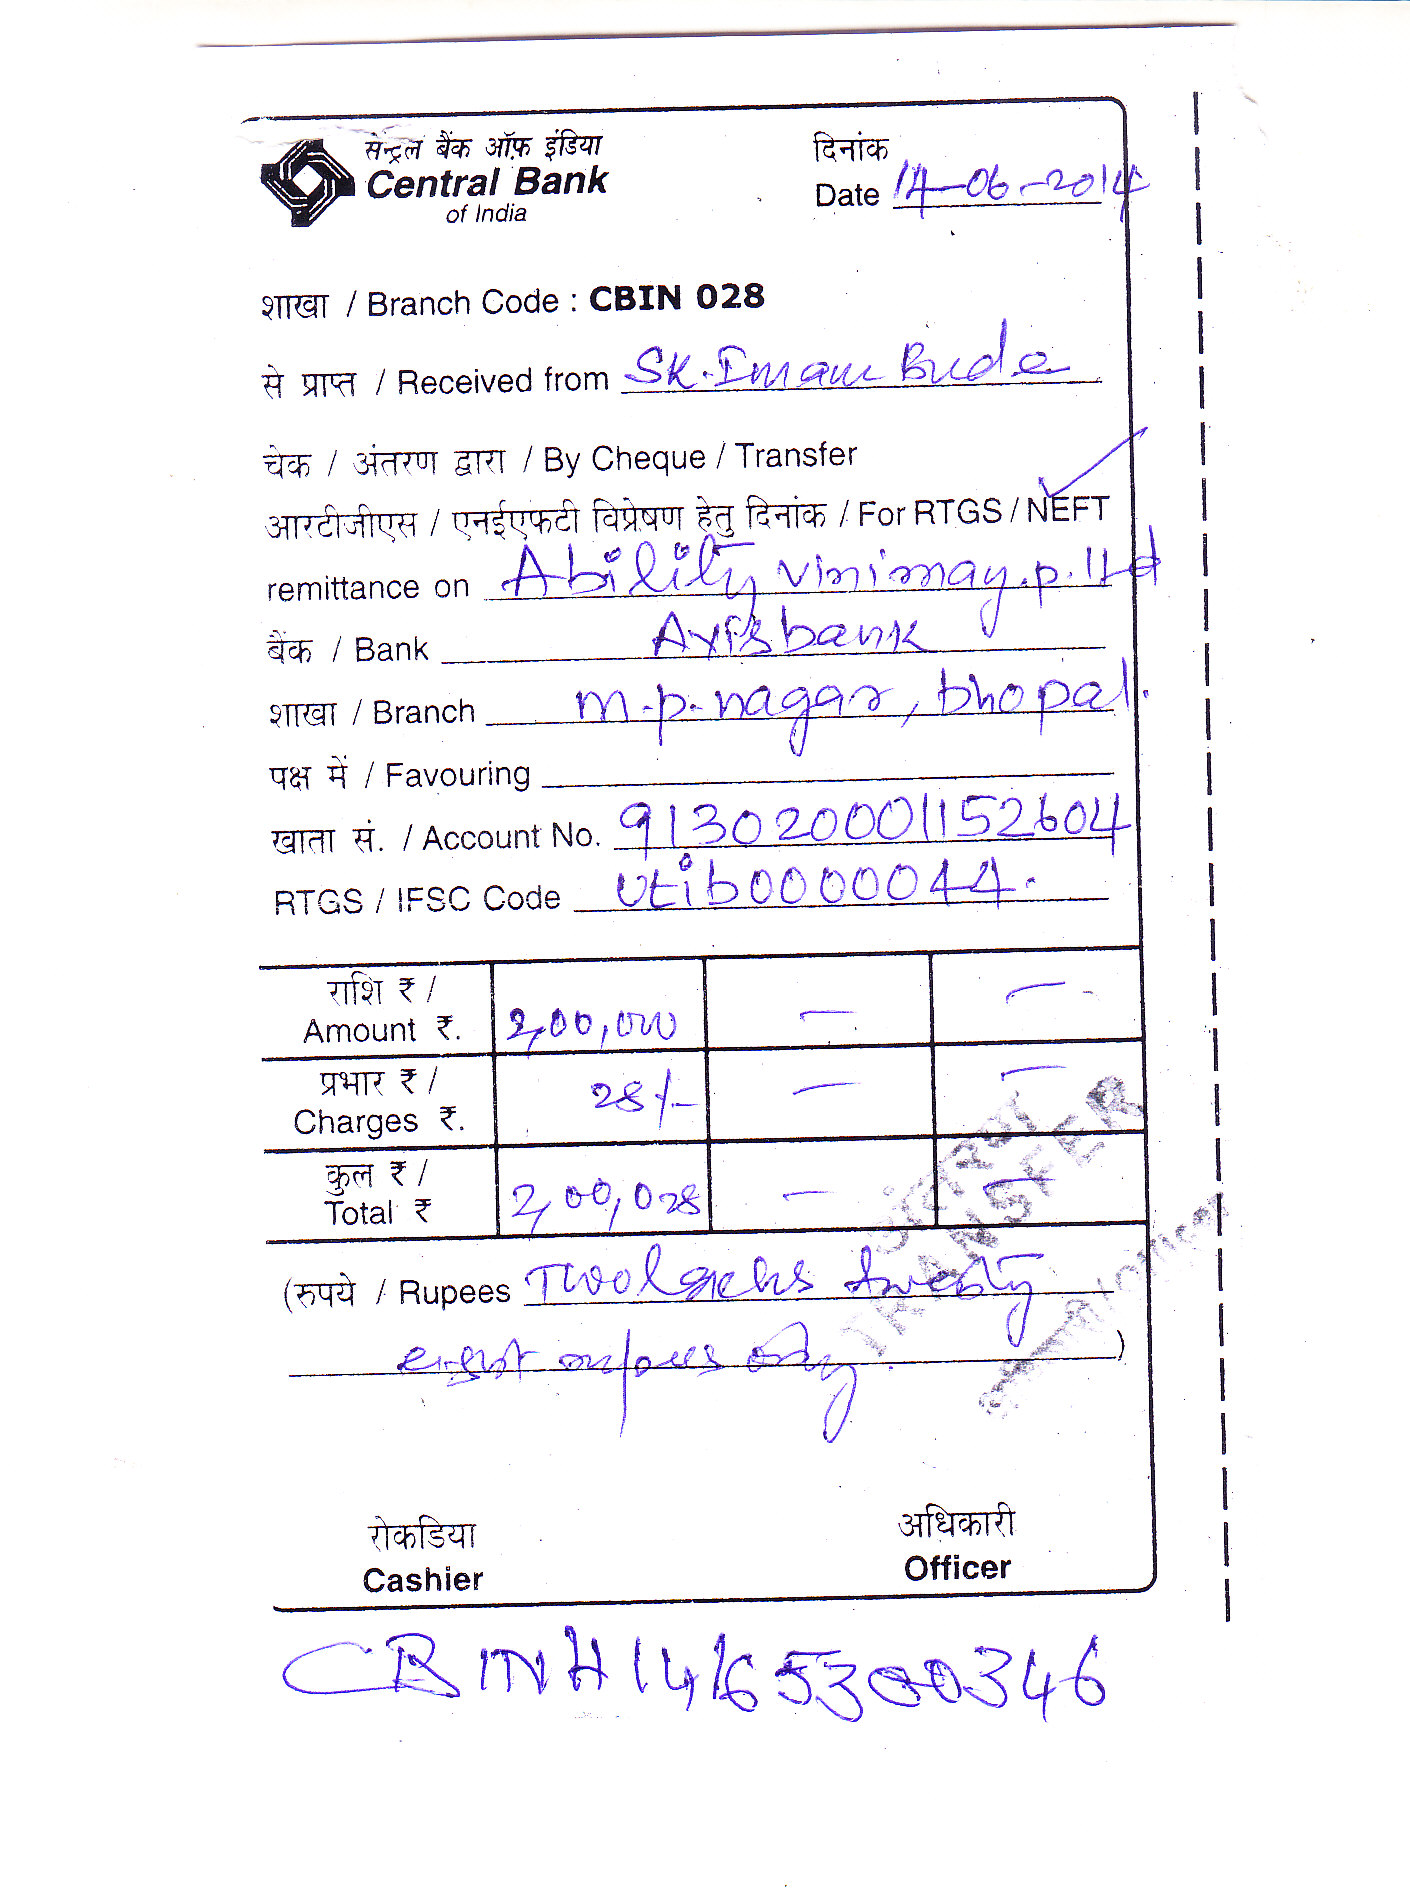 सेन्ट्रल बैंक ऑफ़ इंडिया
Central Bank
of India
दिनांक
Date 14-06-2014
शाखा / Branch Code : CBIN 028
से प्राप्त / Received from SK. Imam Bude
चेक / अंतरण द्वारा / By Cheque / Transfer
आरटीजीएस / एनईएफटी विप्रेषण हेतु दिनांक / For RTGS / NEFT
remittance on Ability vinimay.p.ltd
बैंक / Bank Axis bank
शाखा / Branch m.p.nagar, bhopal.
पक्ष में / Favouring
खाता सं. / Account No. 913020001152604
RTGS / IFSC Code utib0000044.
राशि ₹ / Amount ₹. 2,00,000 — —
प्रभार ₹ / Charges ₹. 28/- — —
कुल ₹ / Total ₹ 2,00,028 — —
अंतरण
TRANSFER
(रुपये / Rupees Two lachs twenty
eight rupees only )
रोकडिया
Cashier
अधिकारी
Officer
CBINH14165300346